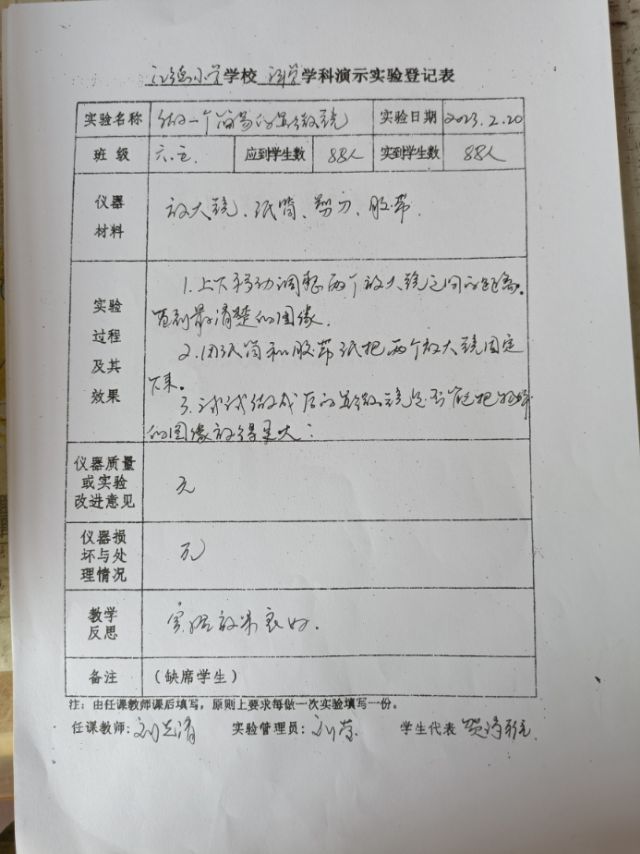 小学学校 科学学科演示实验登记表
实验名称 做一个简易的显微镜 实验日期 2023.2.20
班 级 六. 应到学生数 88人 实到学生数 88人
仪器
材料
放大镜、纸筒、剪刀、胶带.
实验
过程
及其
效果
1.上下移动调整两个放大镜之间的距离。
直到最清楚的图像.
2.用纸筒和胶带纸把两个放大镜固定
下来。
3.试试做成后的显微镜是否能把物体
的图像放得更大:
仪器质量
或实验
改进意见
无
仪器损
坏与处
理情况
无
教学
反思
实验效果良好.
备注 (缺席学生)
注：由任课教师课后填写，原则上要求每做一次实验填写一份。
任课教师: 刘 清 实验管理员: 刘 学生代表